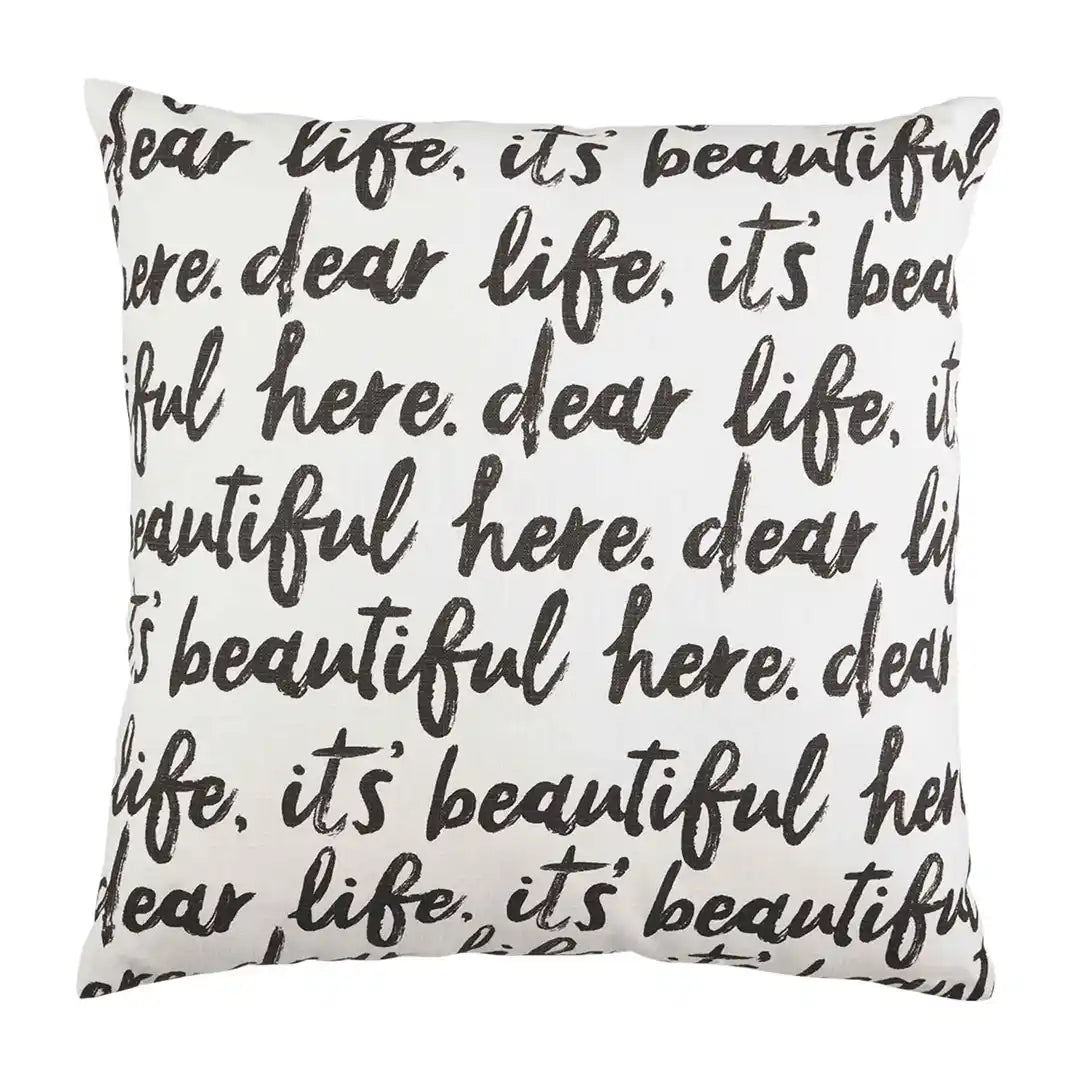 dear life, it's beautiful
here. dear life, it's beau
iful here. dear life, it
beautiful here. dear lif
it's beautiful here. dear
life, it's beautiful her
dear life, it's beautiful
ere. dear life, it's beauti